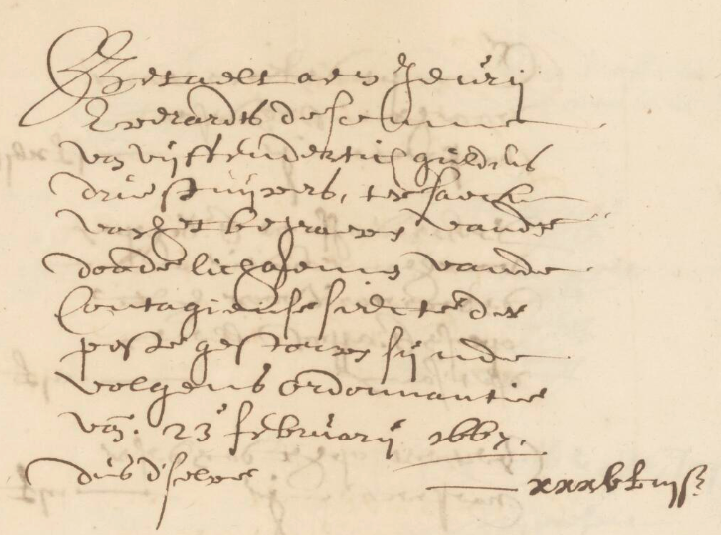 Betaelt aen Jeurij
Everardts de somme
van vijffendertich guldens
drie stuijvers, ter saecke
van het begraven vande
doode lichaemen vande
Contagieuse sieckte der
peste gestorven sijnde
volgens ordonnantie
van. 23 februarij 1667.
dus d'selve xxxv £ iij ß